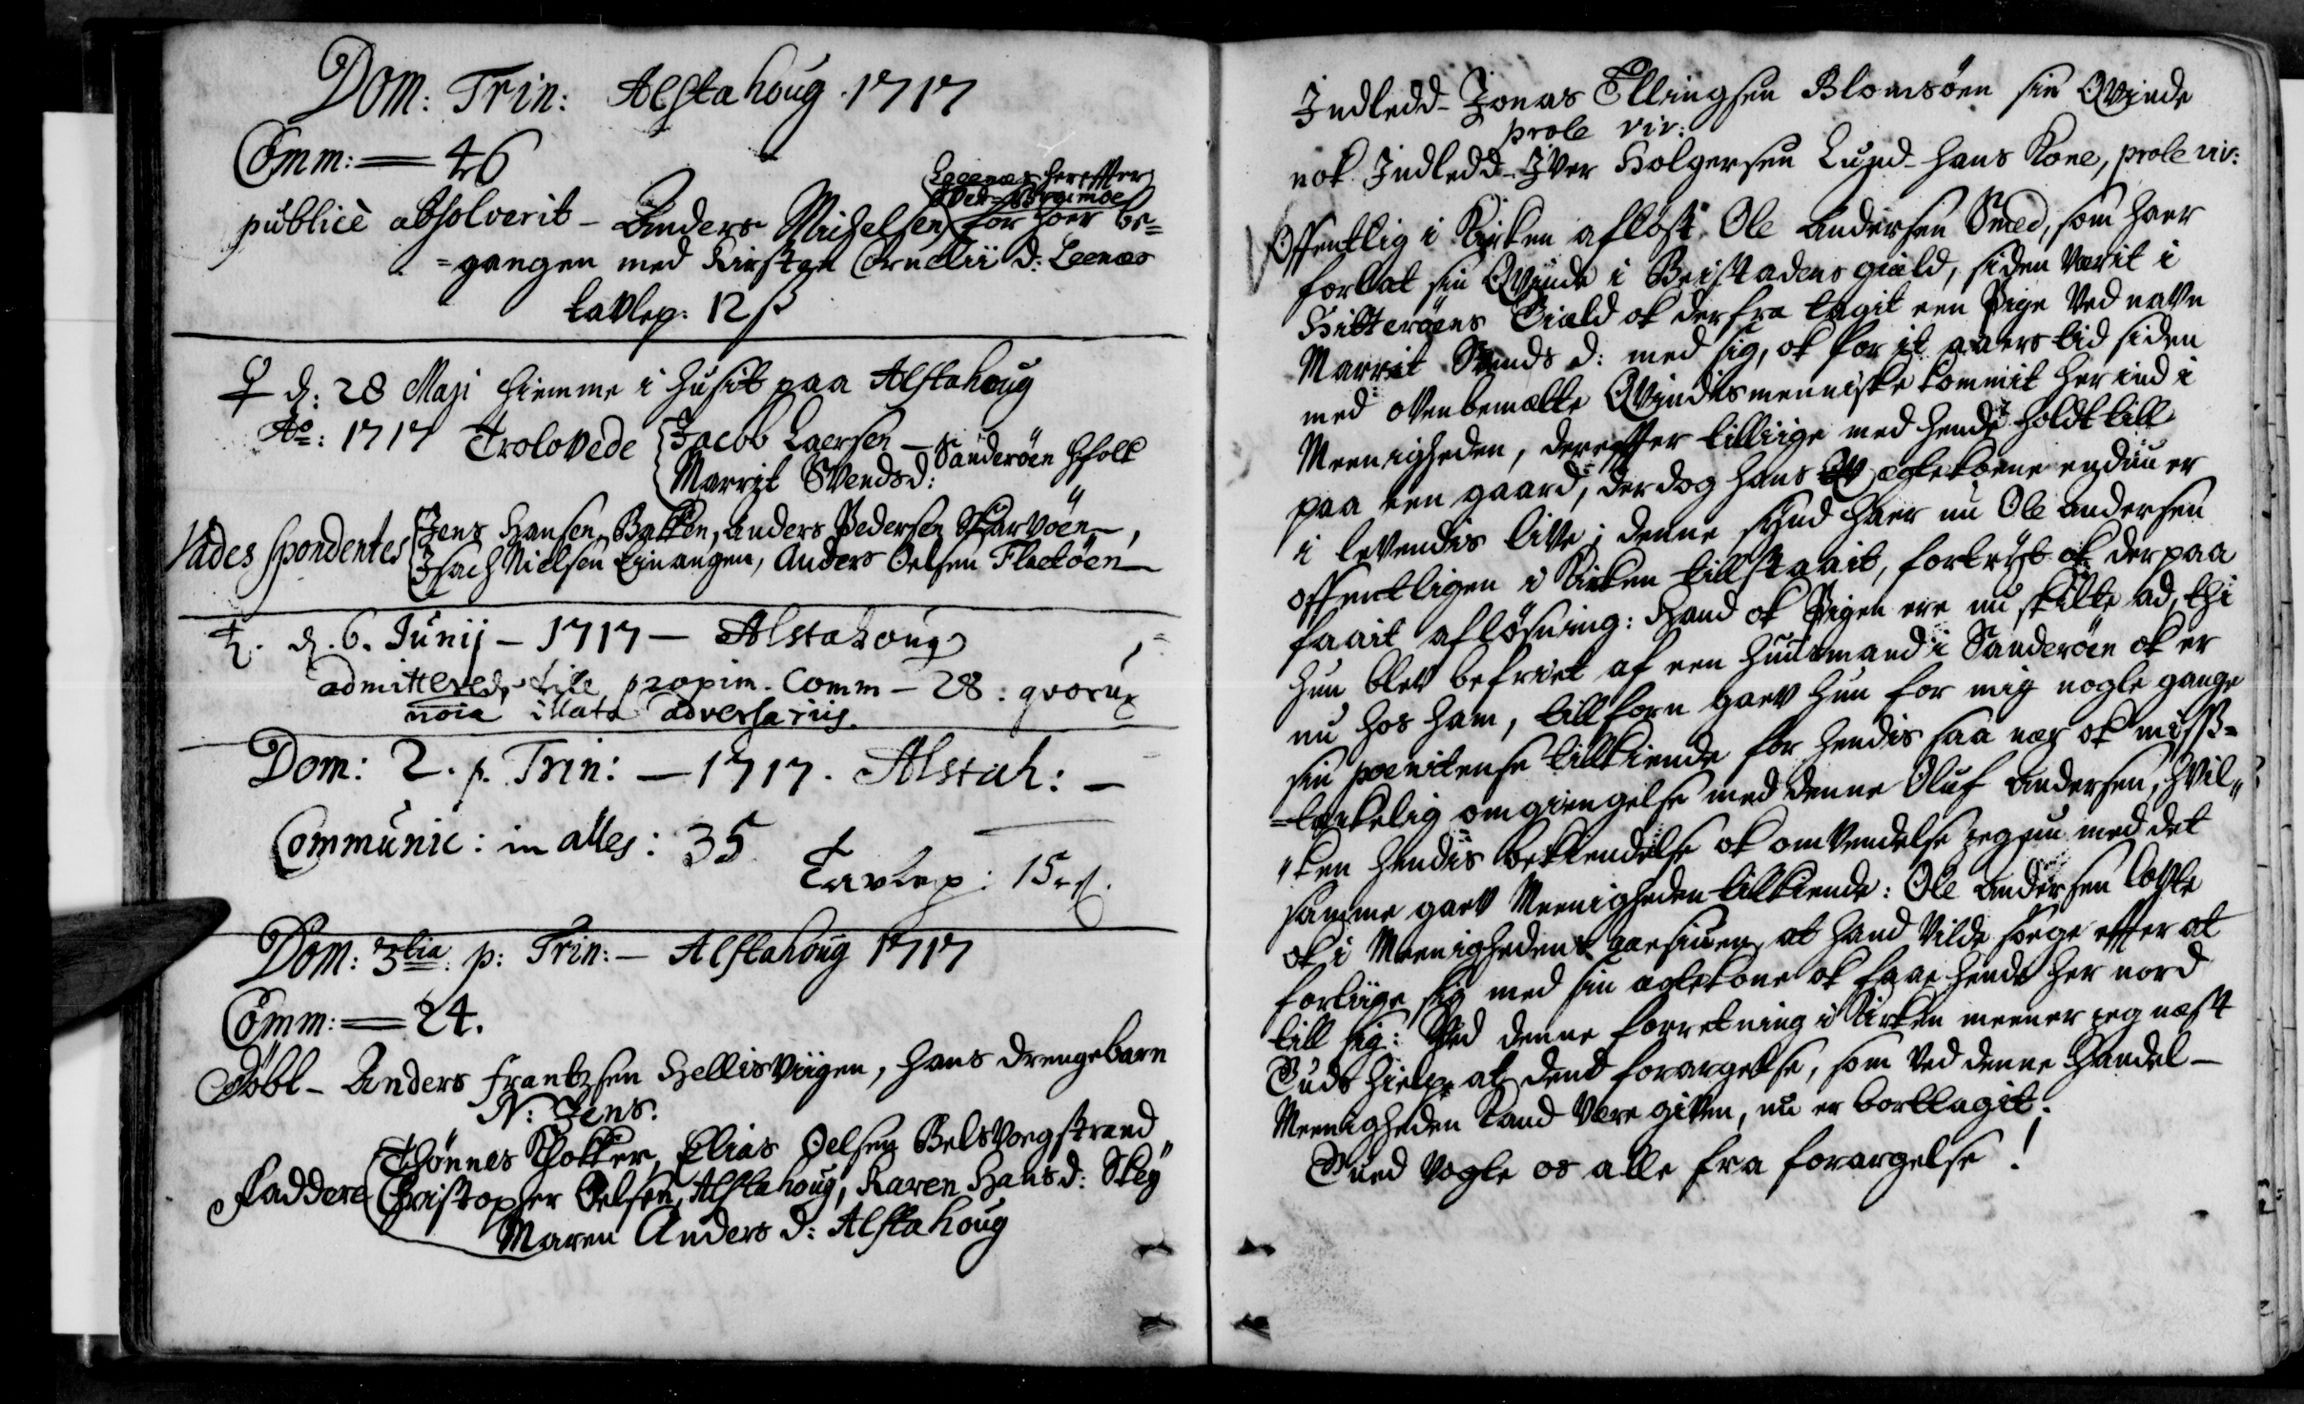 Dom: Trin: Alstahoug. 1717
Comm: = 46
Leenæs herefter
publicè absolverit - Anders Michelsen for hoer be=
=gangen med Kirsten Cornelii d: Leenæs
tavlep: 12 ß
♀ d: 28 Maji hiemme i Husit paa Alstahoug
Ao: 1717 Trolovede Jacob Laersen - Sanderöen
Marrit Svends d:
Vades spondentes Jens Hansen Bakken, Anders Pedersen Skarvöen,
Isach Nielsen Einangen, Anders Oelsen Flatöen
♄. d. 6. Junij - 1717 - Alstahoug
admittered. till proxim. Comm - 28: qvorum
noia illata adversariis.
Dom: 2. p. Trin: - 1717. Alstah: -
Communic: in alles: 35
Tavlep: 15 ß.
Dom: 3tia: p: Trin: - Alstahoug 1717
Comm: = 24.
Döbt - Anders Frantzsen Hellisviigen, hans drengebarn
N: Jens:
Thönnes Skotter, Elias Oelsen Belsvogstrand
Faddere Christopher Oelsen, Alstahoug, Karen Hans d: Skey
Maren Anders d: Alstahoug
Indledd - Jonas Ellingsen Blomsöen sin Qvinde
prole viv:
nok Indledd - Iver Holgersen Lund - hans Kone, prole viv:
Offentlig i Kirken aflöst Ole Andersen Smed, som haer
forlat sin Qvinde i Beistadens gield, siden værit i
Hitteröens Gield ok derfra tagit een Pige ved navn
Marrit Svends d: med sig, ok for it aars tid siden
med ovenbemælte Qvindismenniske kommit her ind i
Meenigheden, derefter tilliige med hende holdt till
paa een gaard, der dog hans ægtekone endnu er
i levendis live; denne synd haer nu Ole Andersen
offentligen i Kirken tillstaait, fortrÿt ok derpaa
faait aflösning: Hand ok Pigen ere nu skilte ad, thi
hun blev befriet af een Huusmand i Sanderöen ok er
nu hos ham, tillforn gaev hun for mig nogle gange
sin poenitense tillkiende for hendis saa nær ok miss=
=tænkelig omgiengelse med denne Oluf Andersen, hvil"
"ken hendis bekiendelse ok omvendelse jeg nu med det
samme gaev Meenigheden tilkiende: Ole Andersen lovte
ok i Meenighedens at hand vilde sörge efter at
forliige sig med sin ægtekone ok faae hende her nord
till sig: Ved denne forretning i Kirken meener jeg næst
Guds hielp at dend forargelse, som ved denne handel -
Meenigheden kand være given, nu er borttagit.
Gued vogte os alle fra forargelse!